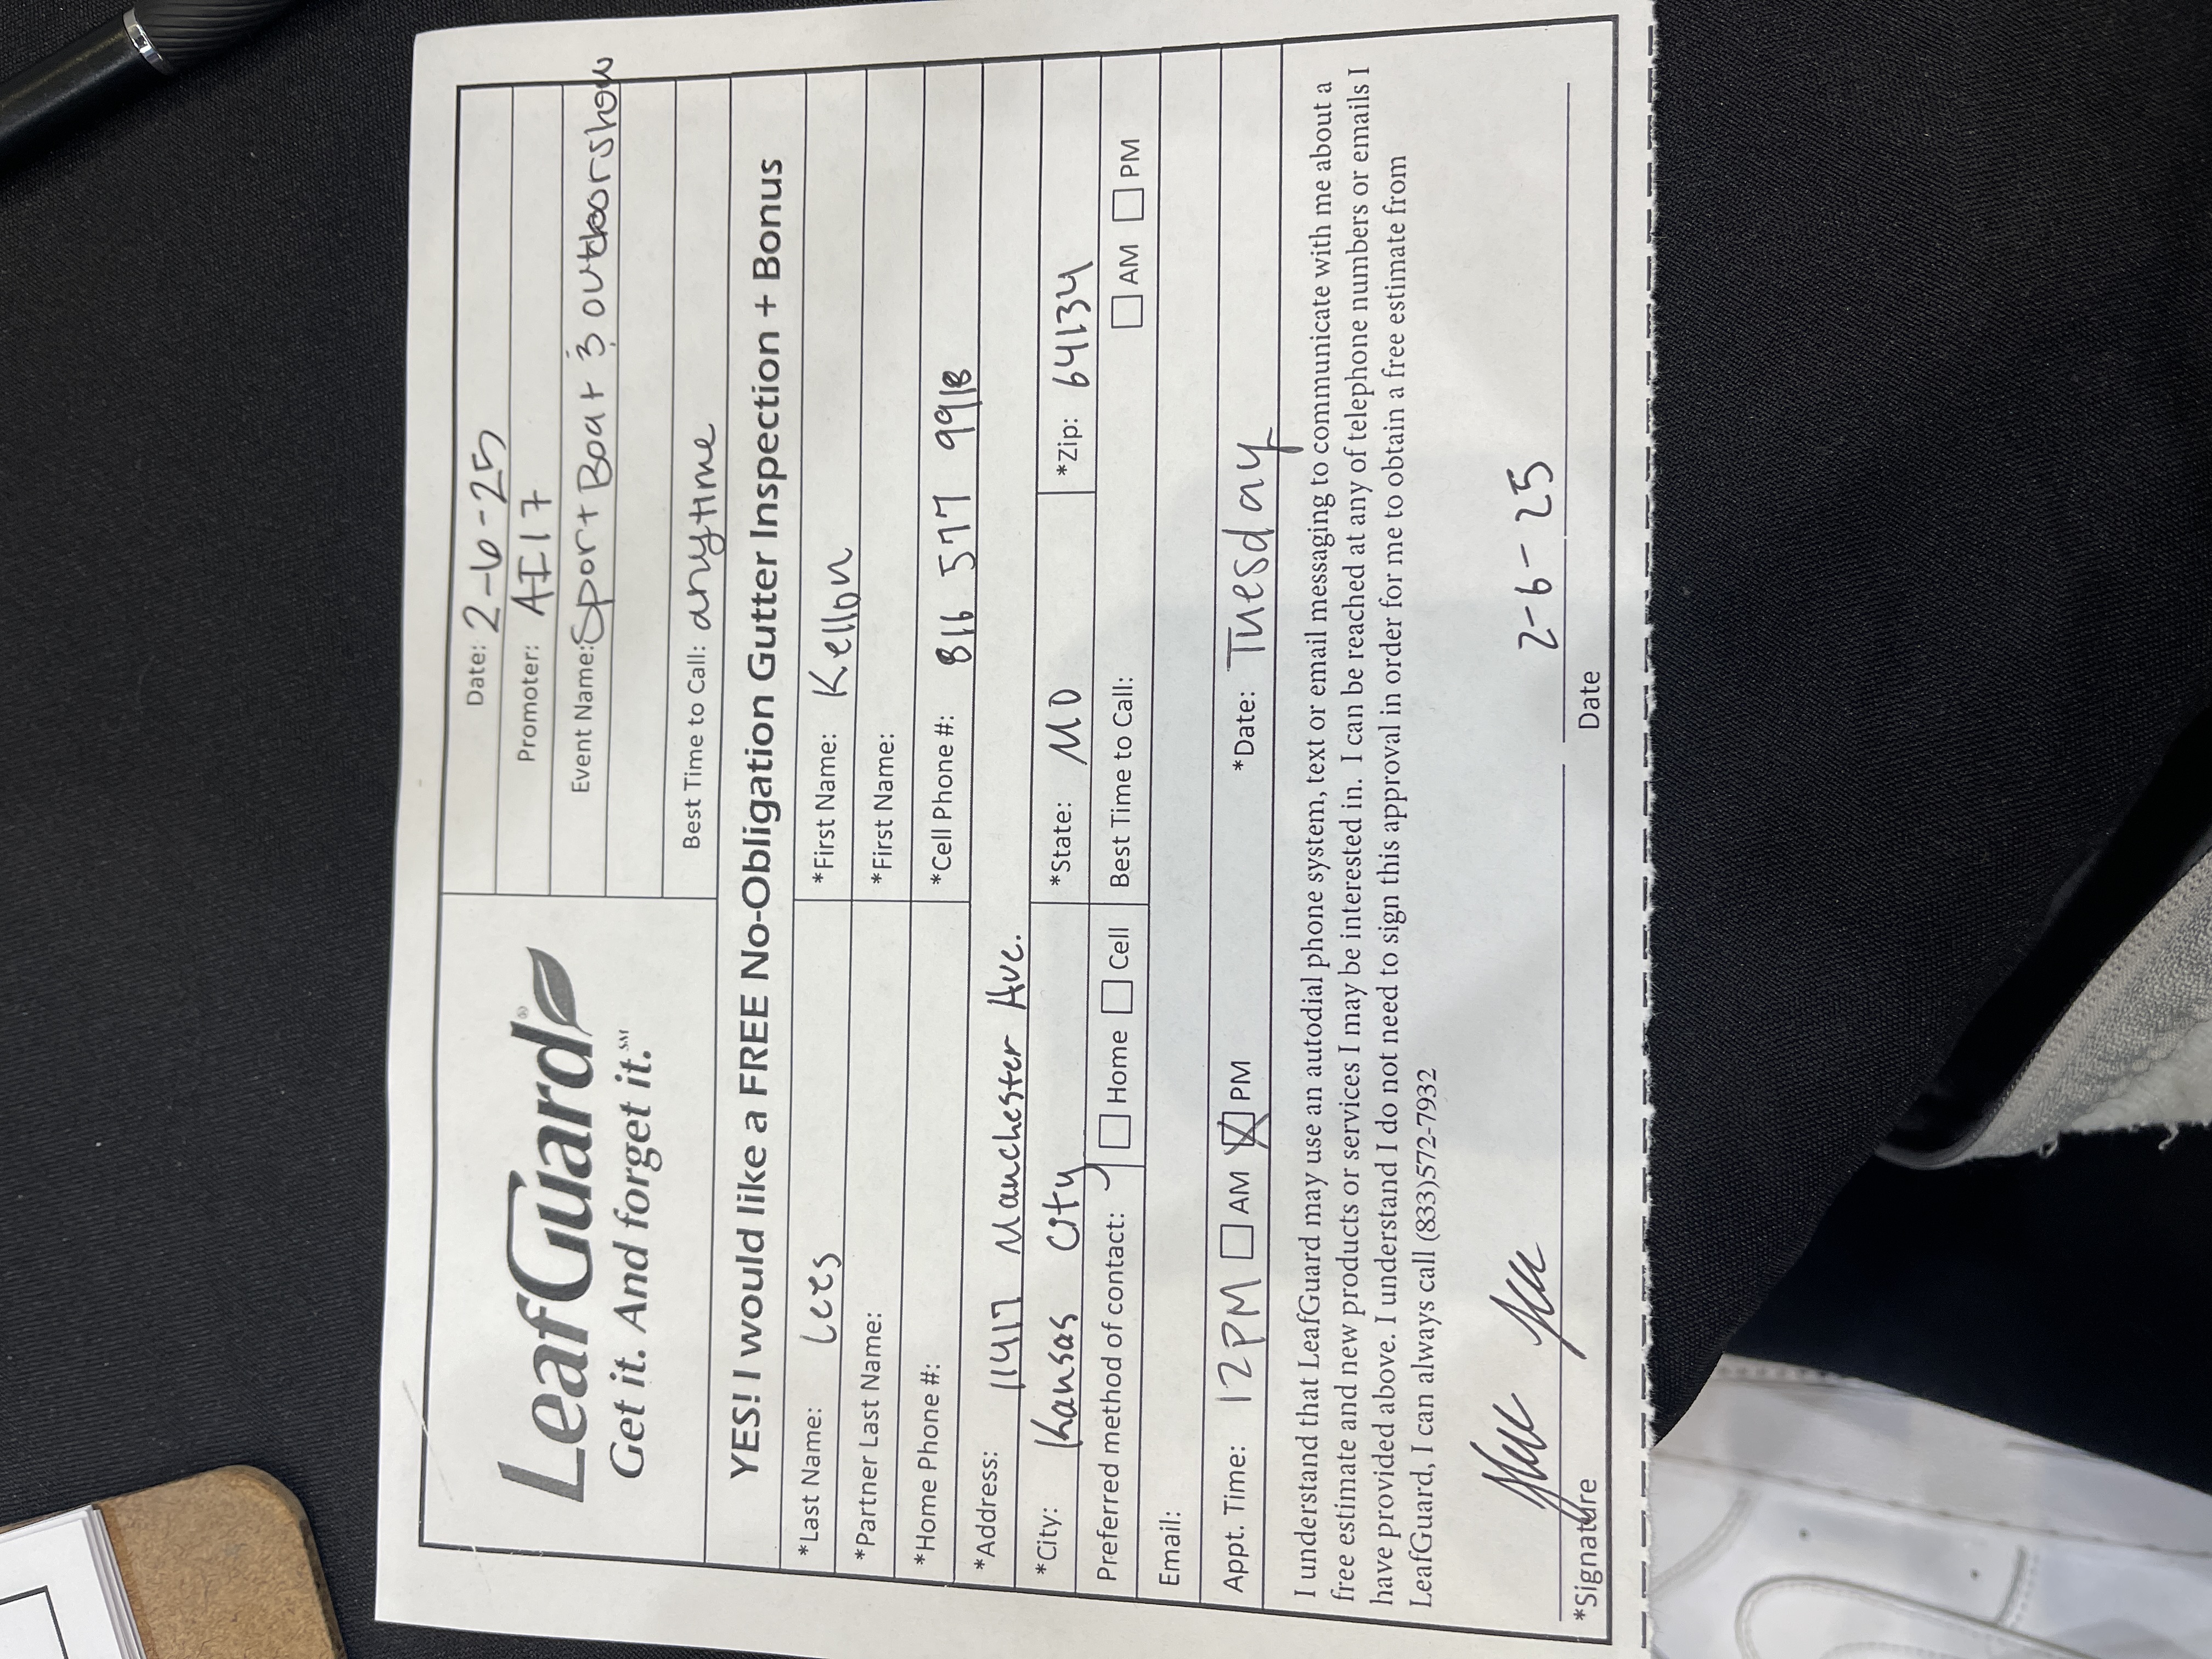 LeafGuard®
Get it. And forget it.℠
Date: 2-6-25
Promoter: AI17
Event Name: Sport Boat & outdoorshow
Best Time to Call: anytime
YES! I would like a FREE No-Obligation Gutter Inspection + Bonus
*Last Name: Lees *First Name: Kellon
*Partner Last Name: *First Name:
*Home Phone #: *Cell Phone #: 816 577 9918
*Address: 11417 Manchester Ave.
*City: Kansas City *State: MO *Zip: 64134
Preferred method of contact: Home Cell Best Time to Call: AM PM
Email:
Appt. Time: 12PM AM PM *Date: Tuesday
I understand that LeafGuard may use an autodial phone system, text or email messaging to communicate with me about a
free estimate and new products or services I may be interested in. I can be reached at any of telephone numbers or emails I
have provided above. I understand I do not need to sign this approval in order for me to obtain a free estimate from
LeafGuard, I can always call (833)572-7932
2-6-25
*Signature Date